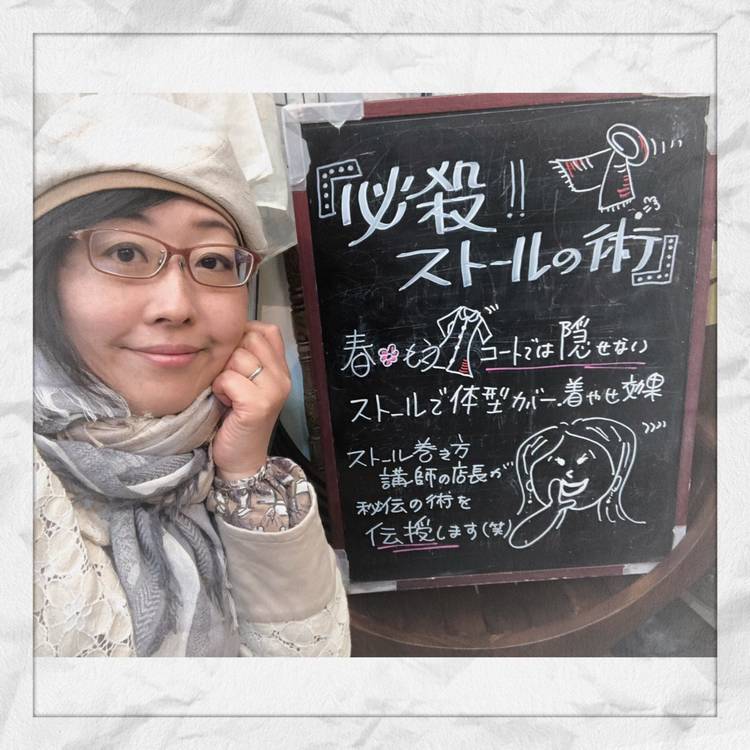 『必殺!!
ストールの術』
春もうコートでは隠せない
ストールで体型カバー.着やせ効果
ストール巻き方
講師の店長が
秘伝の術を
伝授します(笑)